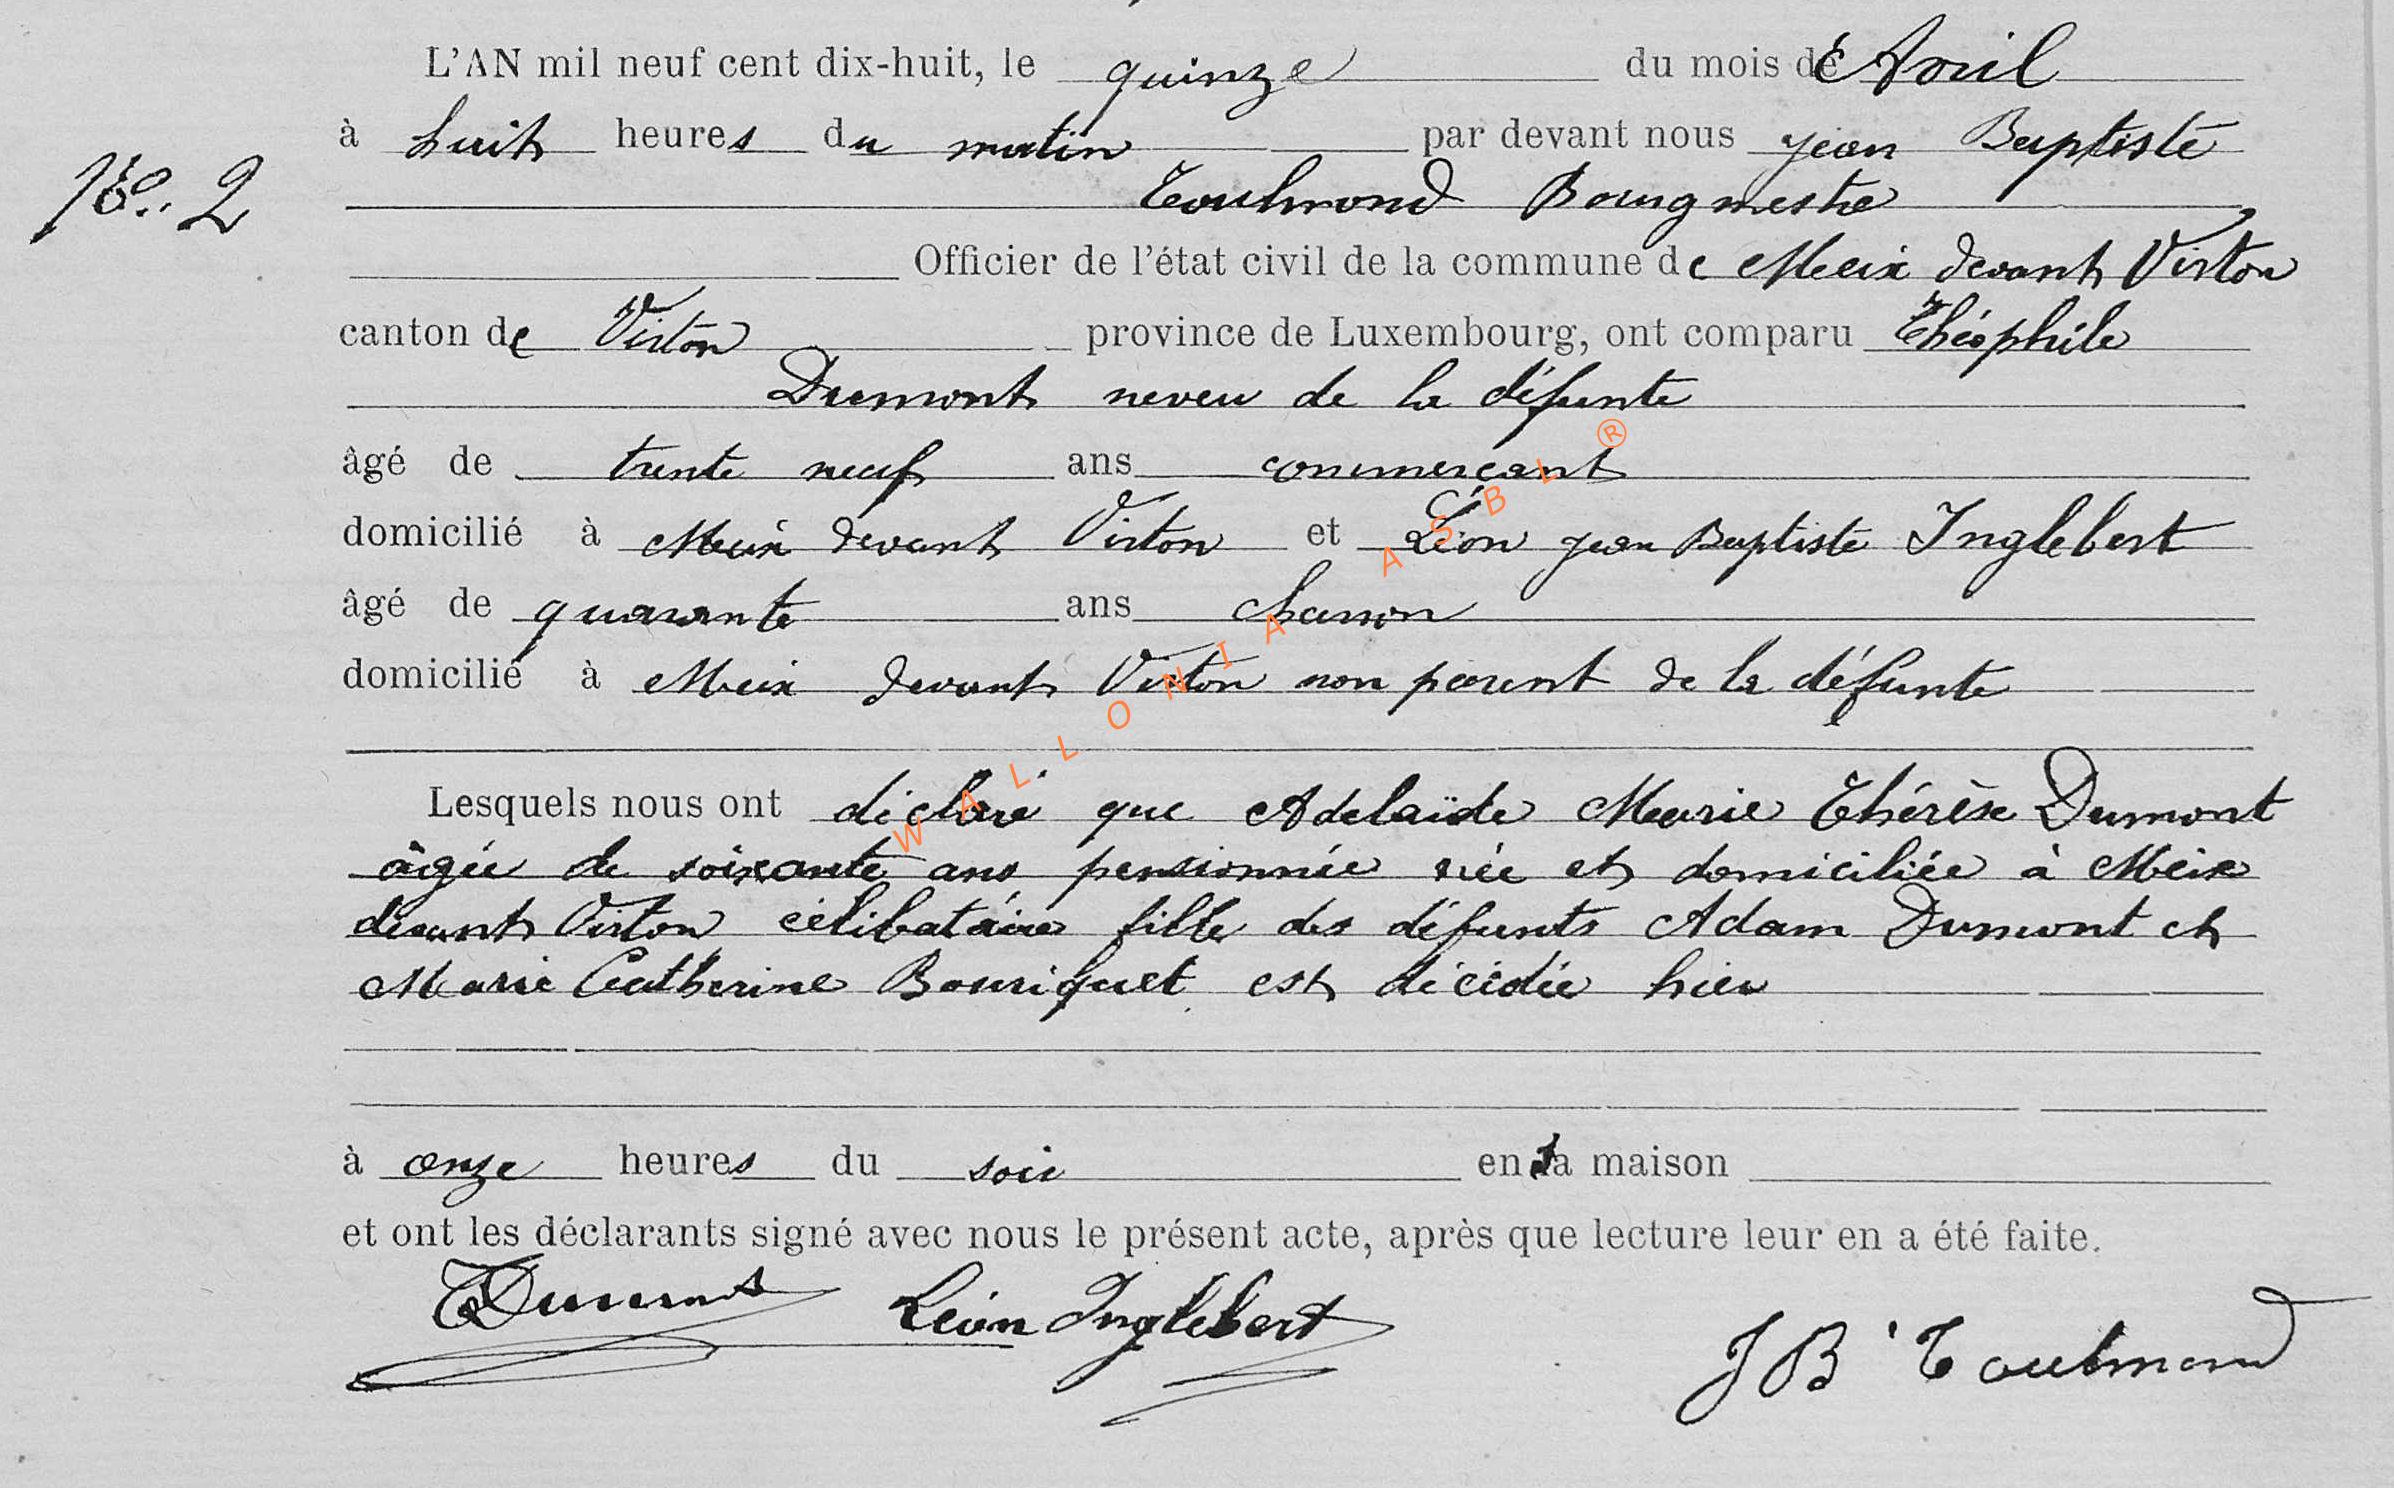 L'AN mil neuf cent dix-huit, le quinze du mois d'Avril
à huit heures du matin par devant nous jean Baptiste
N°. 2
Toulmond Bourgmestre
Officier de l'état civil de la commune de Meix devant Virton
canton de Virton province de Luxembourg, ont comparu Théophile
Dumont neveu de la défunte
âgé de trente neuf ans commerçant
domicilié à Meix devant Virton et Léon jean Baptiste Inglebert
âgé de quarante ans charron
domicilié à Meix devant Virton non parent de la défunte
Lesquels nous ont déclaré que Adelaïde Marie Thérèse Dumont
âgée de soixante ans pensionnée née et domiciliée à Meix
devant Virton célibataire fille des défunts Adam Dumont et
Marie Catherine Bouriquet est décédée hier
à onze heures du soir en sa maison
et ont les déclarants signé avec nous le présent acte, après que lecture leur en a été faite.
TDumont Léon Inglebert JB Toulmond
WALLONIA ASBL ®